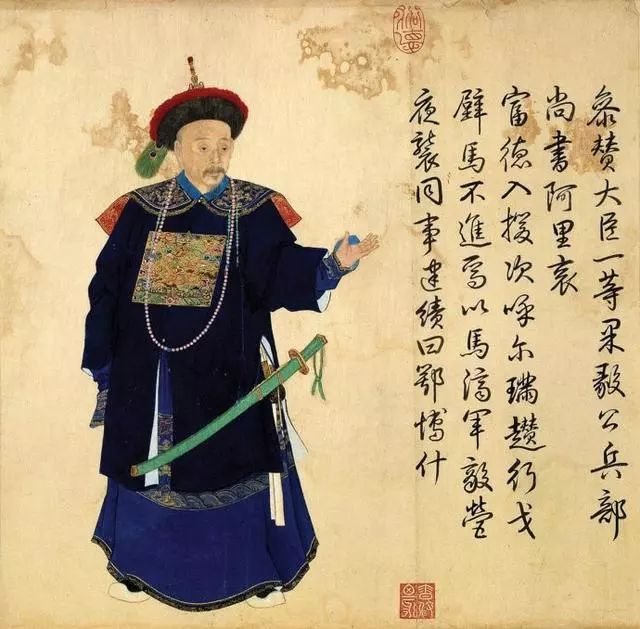 叅賛大臣一等果毅公兵部
尚書阿里衮
富德入援次呼尔璊趲行戈
壁馬不進焉以馬濟軍敲營
夜襲同事建績曰鄂博什